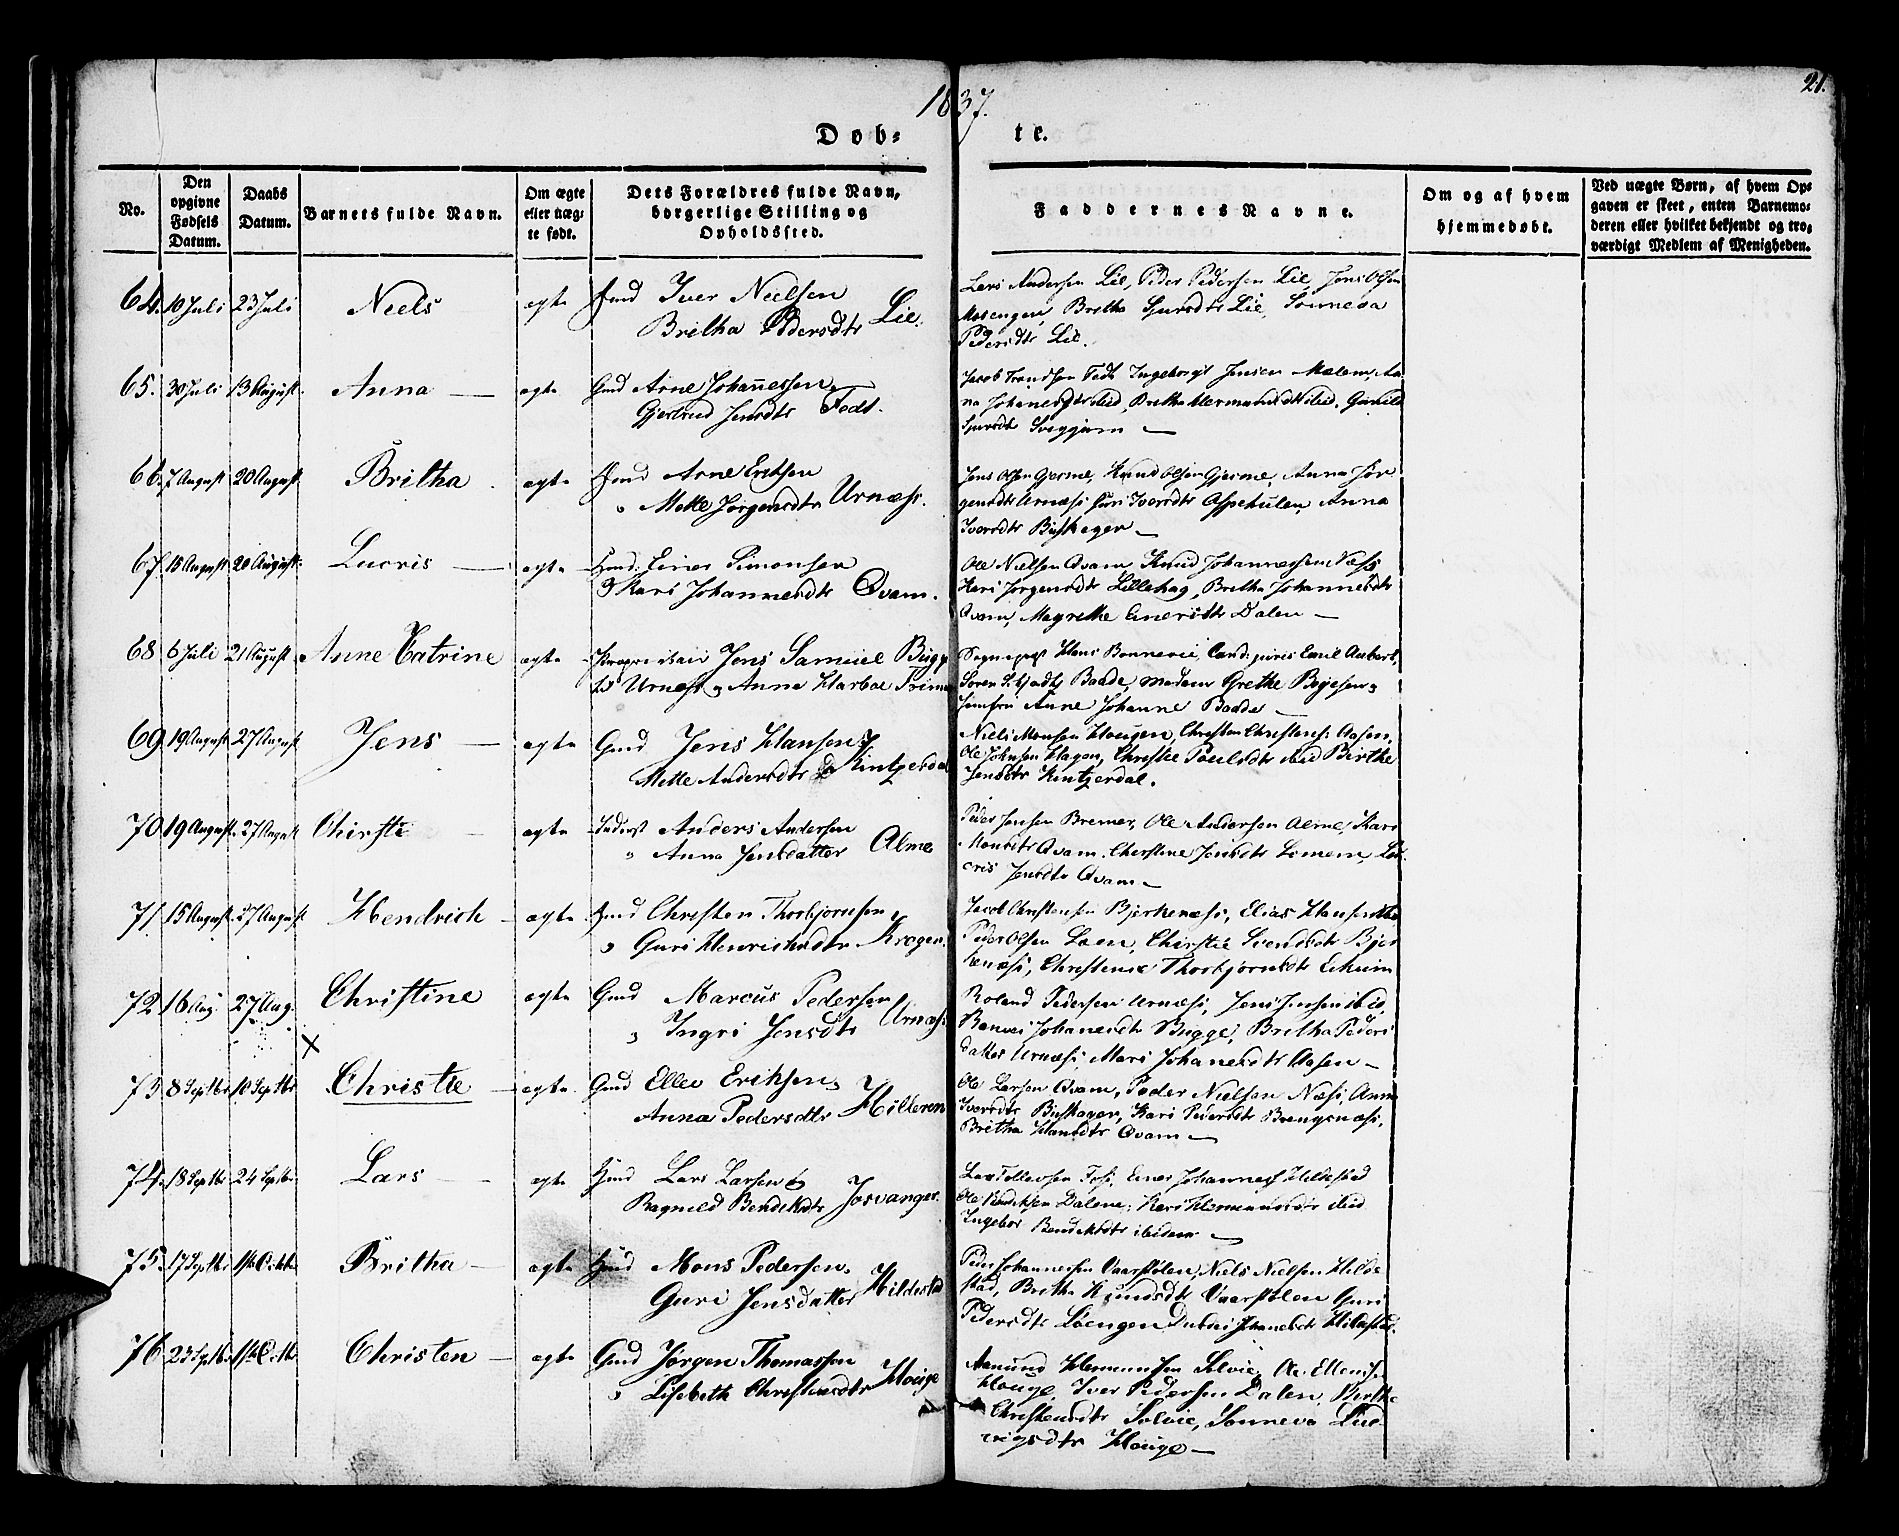 1837.
21.
Døb- te.
No.
Den opgivne Fødsels Datum.
Daabs Datum.
Barnets fulde Navn.
Om ægte eller uæg- te født.
Dets Forældres fulde Navn, borgerlige Stilling og Opholdssted.
Faddernes Navne.
Om og af hvem hjemmedøbt.
Ved uægte Børn, af hvem Op- gaven er skeet, enten Barnemo- deren eller hvilket bekjendt og tro- værdigt Medlem af Menigheden.
64. 10 Juli 23 Juli Niels ægte Iver Nielsen
Britha Pedersdtr Lie.
Lars Andersen Lie, Peder Pedersen Lie, Jens Olsen
Mosengen, Britha Sjursdtr Lie, Sonneva
Pedersdtr Lie.
65. 30 Juli 13 August Anna — ægte Gmd Arne Johannessen
Gjertrud Jensdtr Fedt.
Jacob Trondsen Fedt Ingeborgt Jensen Mælem, An-
na Johanesdtr ibid, Britha Hermundsdtr ibid, Gunild
Sjursdtr —
66. 7 August 20 August Britha ægte Arne Ericksen
" Mette Jørgensdtr Urnæss.
Jens Olsen Gjerme, Knud Olsen Gjerme, Anna Jør-
gensdtr Urnæss Guri Iversdtr Asshehulen, Anna
Iversdtr Buskager —
67. 18 August 20 August Lucris — ægte Einer Simonsen
Kari Johannesdtr Qvam.
Ole Nielsen Qvam, Knud Johannessen Næss
Kari Jørgensdtr Lillehag, Britha Johannesdtr
Qvam, Magrethe Einersdtr Dalen —
68 6 Juli 21 August Anne Catrine ægte Proprietair Jens Samuel Bugge
Urnæs & Anna Harboe Frim
Sognepræst Hans Bonnevie, Cand: juris Emil Aubert,
Søren Baade, Madam Grethe Bøyesen,
Jomfru Anne Johanne Baade —
69 19 August 27 August Jens — ægte Gmd Jens Hansen
Mette Andersdtr Kintzerdal
Niels Monsen Hougen, Christen Christens: Aasen,
Ole Johnsen Hagen, Christie Poulsdtr ibid Birthe
Jensdtr Kintzerdal.
70 19 August 27 August Christi — ægte Inderst Anders Andersen
" Anna Jensdatter Alme
Peder Jensen Bremer, Ole Andersen Alme, Kari
Monsdtr Qvam, Christine Jensdtr Lomem, Lu-
cris Jensdtr Qvam —
71 15 August 27 August Hendrich — ægte Gmd Christen Thorbjørnsen
" Guri Henrichsdtr Krogen.
Jacob Christensen Bjerkenæss, Elias Hansen
Peder Olsen Loen, Christie Svendsdtr Bjer-
kenæss, Christense Thorbjørnsdtr Eikum
72 16 Aug. 27 Aug. Christine ægte Gmd Marcus Pedersen
" Ingri Jensdtr Urnæss
Roland Pedersen Urnæss, Jens Jensen ibid,
Johanesdtr Bugge, Britha Peders-
datter Urnæss, Mari Johanesdtr Aasen —
X
73 8 Septbr 10 Septbr Christie — ægte Gmd Ellev Eriksen
Anna Pedersdtr Hilleren
Ole Larsen Qvam, Peder Nielsen Næss, Anna
Iversdtr Buskager, Kari Pedersdtr Brengsnæss,
Britha Hansdtr Qvam —
74. 18 Septbr 24 Septbr Lars — ægte Lars Larsen
Ragnild Bendiktsdtr Josvanger.
Lars Tollevsen Foss, Einer Johannes Hildestad
Ole Hendriksen Dalene, Kari Hermundsdtr ibid
Ingebor Bendiktsdtr ibidem —
75. 17 Septbr 1ste Octbr Britha — ægte Mons Pedersen
Guri Jensdatter Hildestad
Peder Johannesen Vaarstølen, Niels Nielsen Hilde-
stad, Britha Knudsdtr Vaarstølen Guri
Pedersdtr Løengen Johanesdtr Hildestad.
76 23 Septbr 1ste Octbr Christen — ægte Gmd Jørgen Thomassen
" Lisbeth Christensdtr Houge
Aamund Hermundsen Solvie, Ole Ellevs:
Houge, Iver Pedersen Dalen, Birthe
Christensdtr Solvie, Sonneva Lud-
vigsdtr Houge —